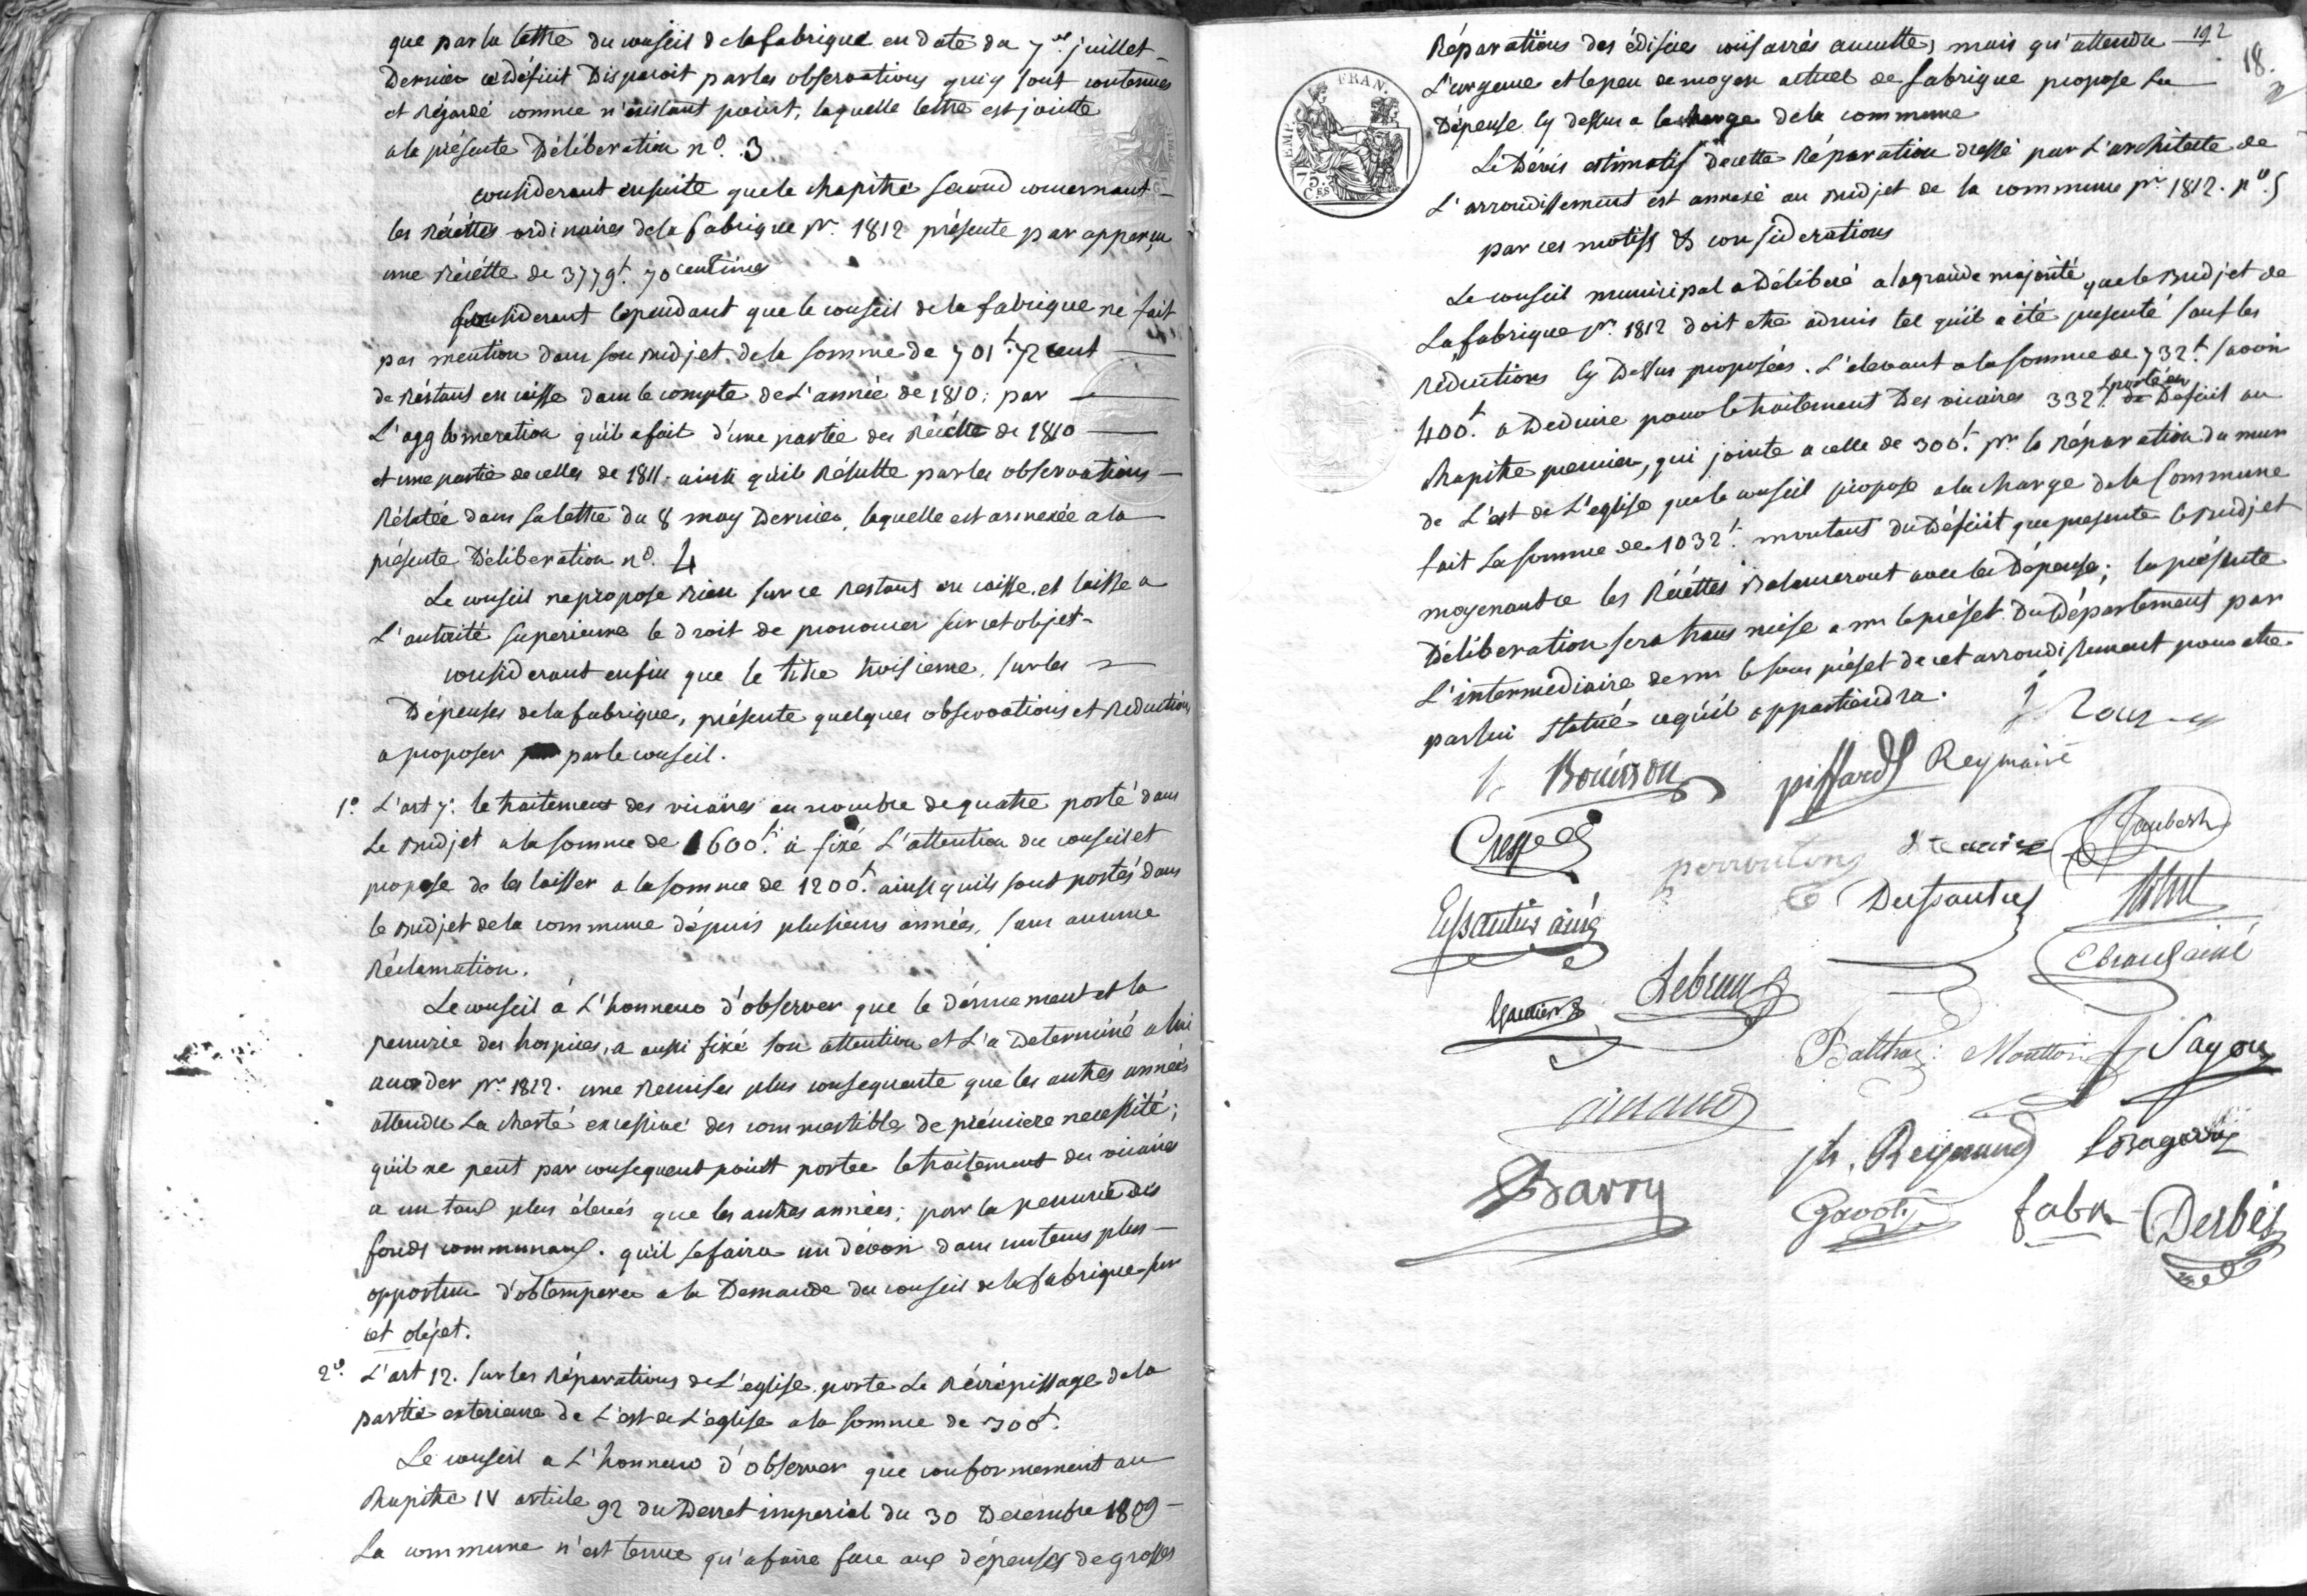 que par la lettre du conseil de la fabrique en date du 7 juillet
Dernier ce déficit Disparoit par les observations qui y sont contenues
et Régardé comme n'existant point, laquelle lettre est jointe
a la présente Déliberation n°. 3
considerant ensuite que le chapitre second concernant
les Récéttes ordinaires de la fabrique pr. 1812 présente par apperçu
une Récétte de 3779f. 70 centimes
Considerant cependant que le conseil de la fabrique ne fait
pas mention dans son Budjet de la somme de 701f. 72 cent
de Réstant en caisse dans le compte de L'année de 1810; par
L'agglomeration qu'il a fait d'une partie des Récétte de 1810
et une partie de celles de 1811. ainsi qu'il Résulte par les observations
Rélatée dans sa lettre du 8 may Dernier, laquelle est annexée a la
présente Déliberation n°. 4
Le conseil ne propose Rien sur ce Restant en caisse, et laisse a
L'autorité superieure le droit de prononcer sur cet objet
considerant enfin que le titre troisieme, sur les
Dépenses de la fabrique, présente quelques observations et Réductions
a proposer par le conseil.
1° L'art 7. le traitement des vicaires au nombre de quatre porté dans
Le Budjet a la somme de 1600f. à fixé L'attention du conseil et
propose de les laisser a la somme de 1200f. ainsi qu'ils sont portés dans
le Budjet de la commune dépuis plusieurs années, sans aucune
Réclamation.
Le conseil à L'honneur d'observer que le dénuement et la
penurie des hospices, a aussi fixé son attention et L'a Determiné a lui
accorder pr. 1812. une Remises plus consequente que les autres années
attendu La cherté excessive des commestibles de prémiere necessité;
qu'il ne peut par consequent point porter le traitement des vicaires
a un taux plus élevés que les autres années; par la penurie des
fonds communaux. qu'il se faira un dévoir dans un tems plus
opportun d'obtemperer a la Demande du conseil de la fabrique sur
cet objet.
2° L'art 12. sur les Réparations de L'eglise, porte Le Récrépissage de la
partie exterieure de L'est de L'eglise a la somme de 300f.
Le conseil a L'honneur d'observer que conformement au
chapitre IV article 92 du Decret imperial du 30 Decembre 1809
La commune n'est tenue qu'a faire face aux dépenses de grosses
192
18.
Réparations des édifices consacrés au culte, mais qu'attendu
L'urgence et le peu de moyen actuel de fabrique propose La
Dépense cy dessus a la charge de la commune
Le Dévis estimatif de cette Réparation dressé par L'architecte de
L'arrondissement est annexé au Budjet de la commune pr. 1812. n°. 5
par ces motifs & considerations
Le conseil municipal a Déliberé a la grande majorité que le Budjet de
La fabrique pr. 1812 doit etre admis tel qu'il a été presenté sauf les
Réductions cy Dessus proposées. L'elevant a la somme de 732f. savoir
400f. a Deduire pour le traitement Des vicaires 332f. porté en Déficit au
chapitre premier, qui jointe a celle de 300f. pr. la Réparation du mur
de L'est de L'eglise que le conseil propose a la charge de la Commune
fait La somme de 1032f. montant du Déficit que presente le Budjet
moyenant ce les Récéttes Balanceront avec les Dépenses; la présente
Déliberation sera transmise a mr le préfet du Département par
L'intermediaire de mr le sous préfet de cet arrondissement pour etre
par lui statué ce qu'il appartiendra.
Bouisson
piffard
Reymaire
Crespe
Jaubert
Essautier ainé
Dessautier
Lebrun
Gautier
Balthaz. Moutton
Sayou
Reynaud
Barry
Gavoty
fabre
Derbès
FRAN.
EMP.
75 CES